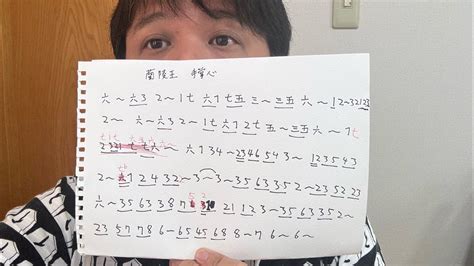 蘭陵王 手掌心
六〜六3 2〜1七 六1七五 三〜三五六〜12〜32123
2〜 六〜六3 2〜1七 六1 2七五 三五六〜1七
2321七 六〜六134〜2346543〜123543
2〜 12432〜3⌒3〜3563352〜23523
六〜3563387 21123〜3563352〜
23 57786〜6545688〜76〜6〜